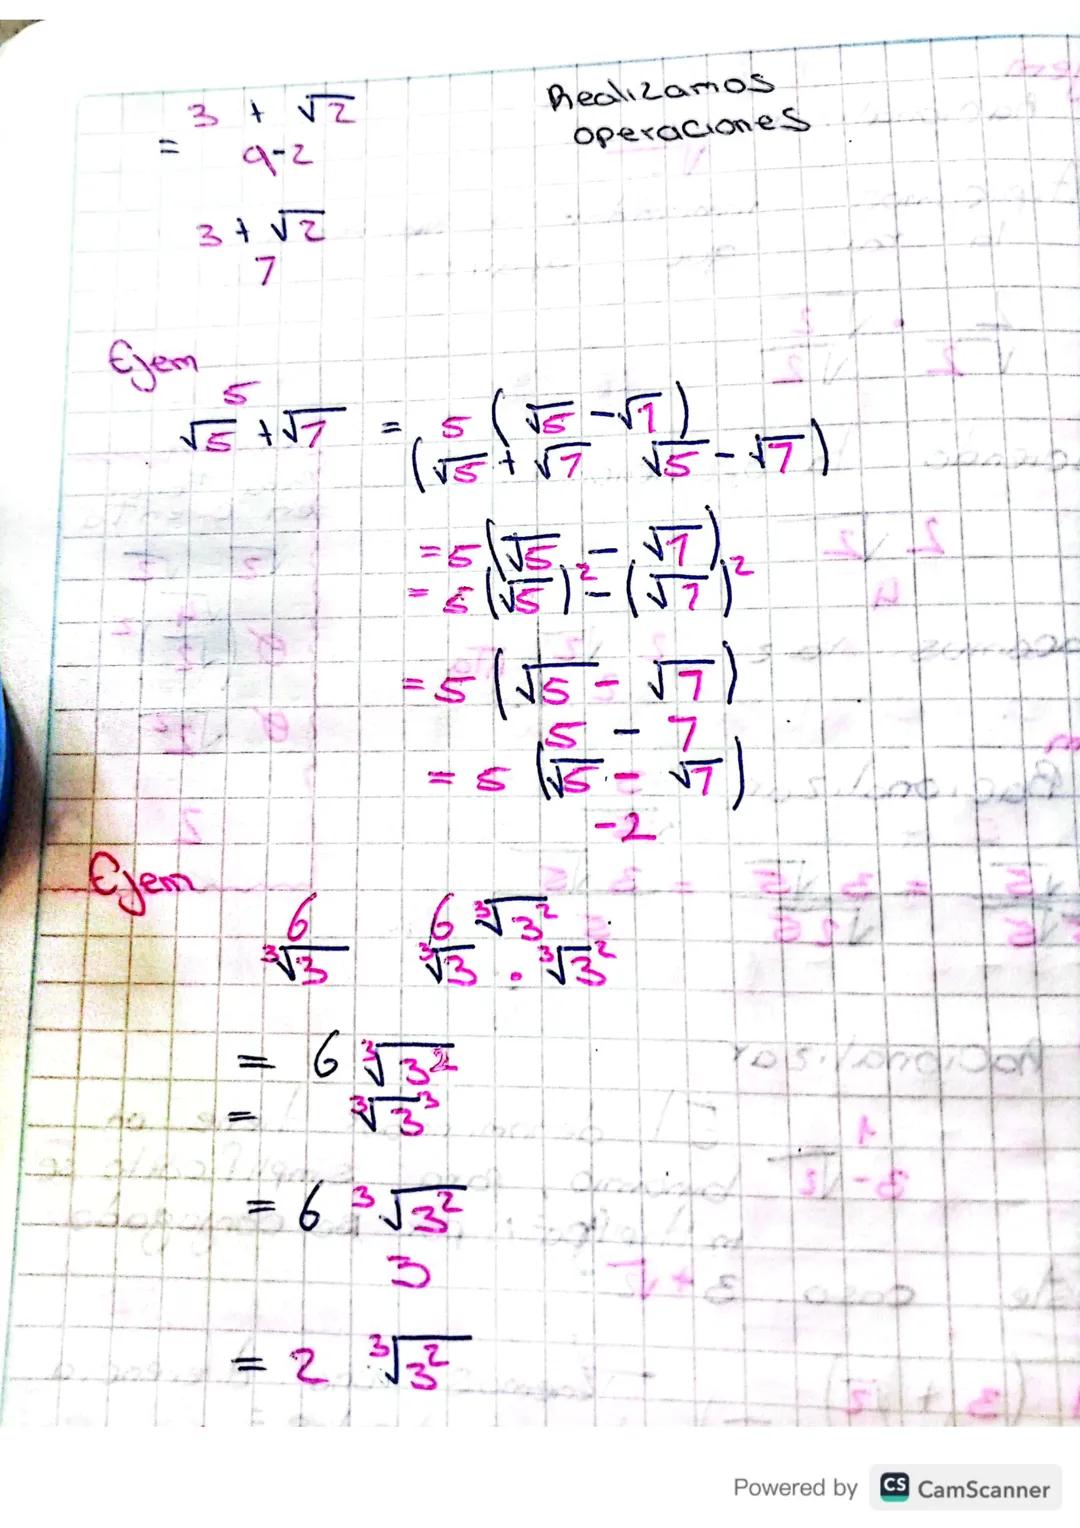 3 + √2 Realizamos
= 9-2 operaciones
3 + √2
7
Ejem
5
√5 + √7 = 5 (√5 - √7)
(√5 + √7 √5 - √7)
= 5 (√5 - √7)
= 5 (√5)² - (√7)²
= 5 (√5 - √7)
5 - 7
= 5 (√5 - √7)
-2
Ejem
6 6 ³√3²
³√3 ³√3 . ³√3²
= 6 ³√3²
= ³√3³
= 6 ³√3²
3
= 2 ³√3²
Powered by CS CamScanner